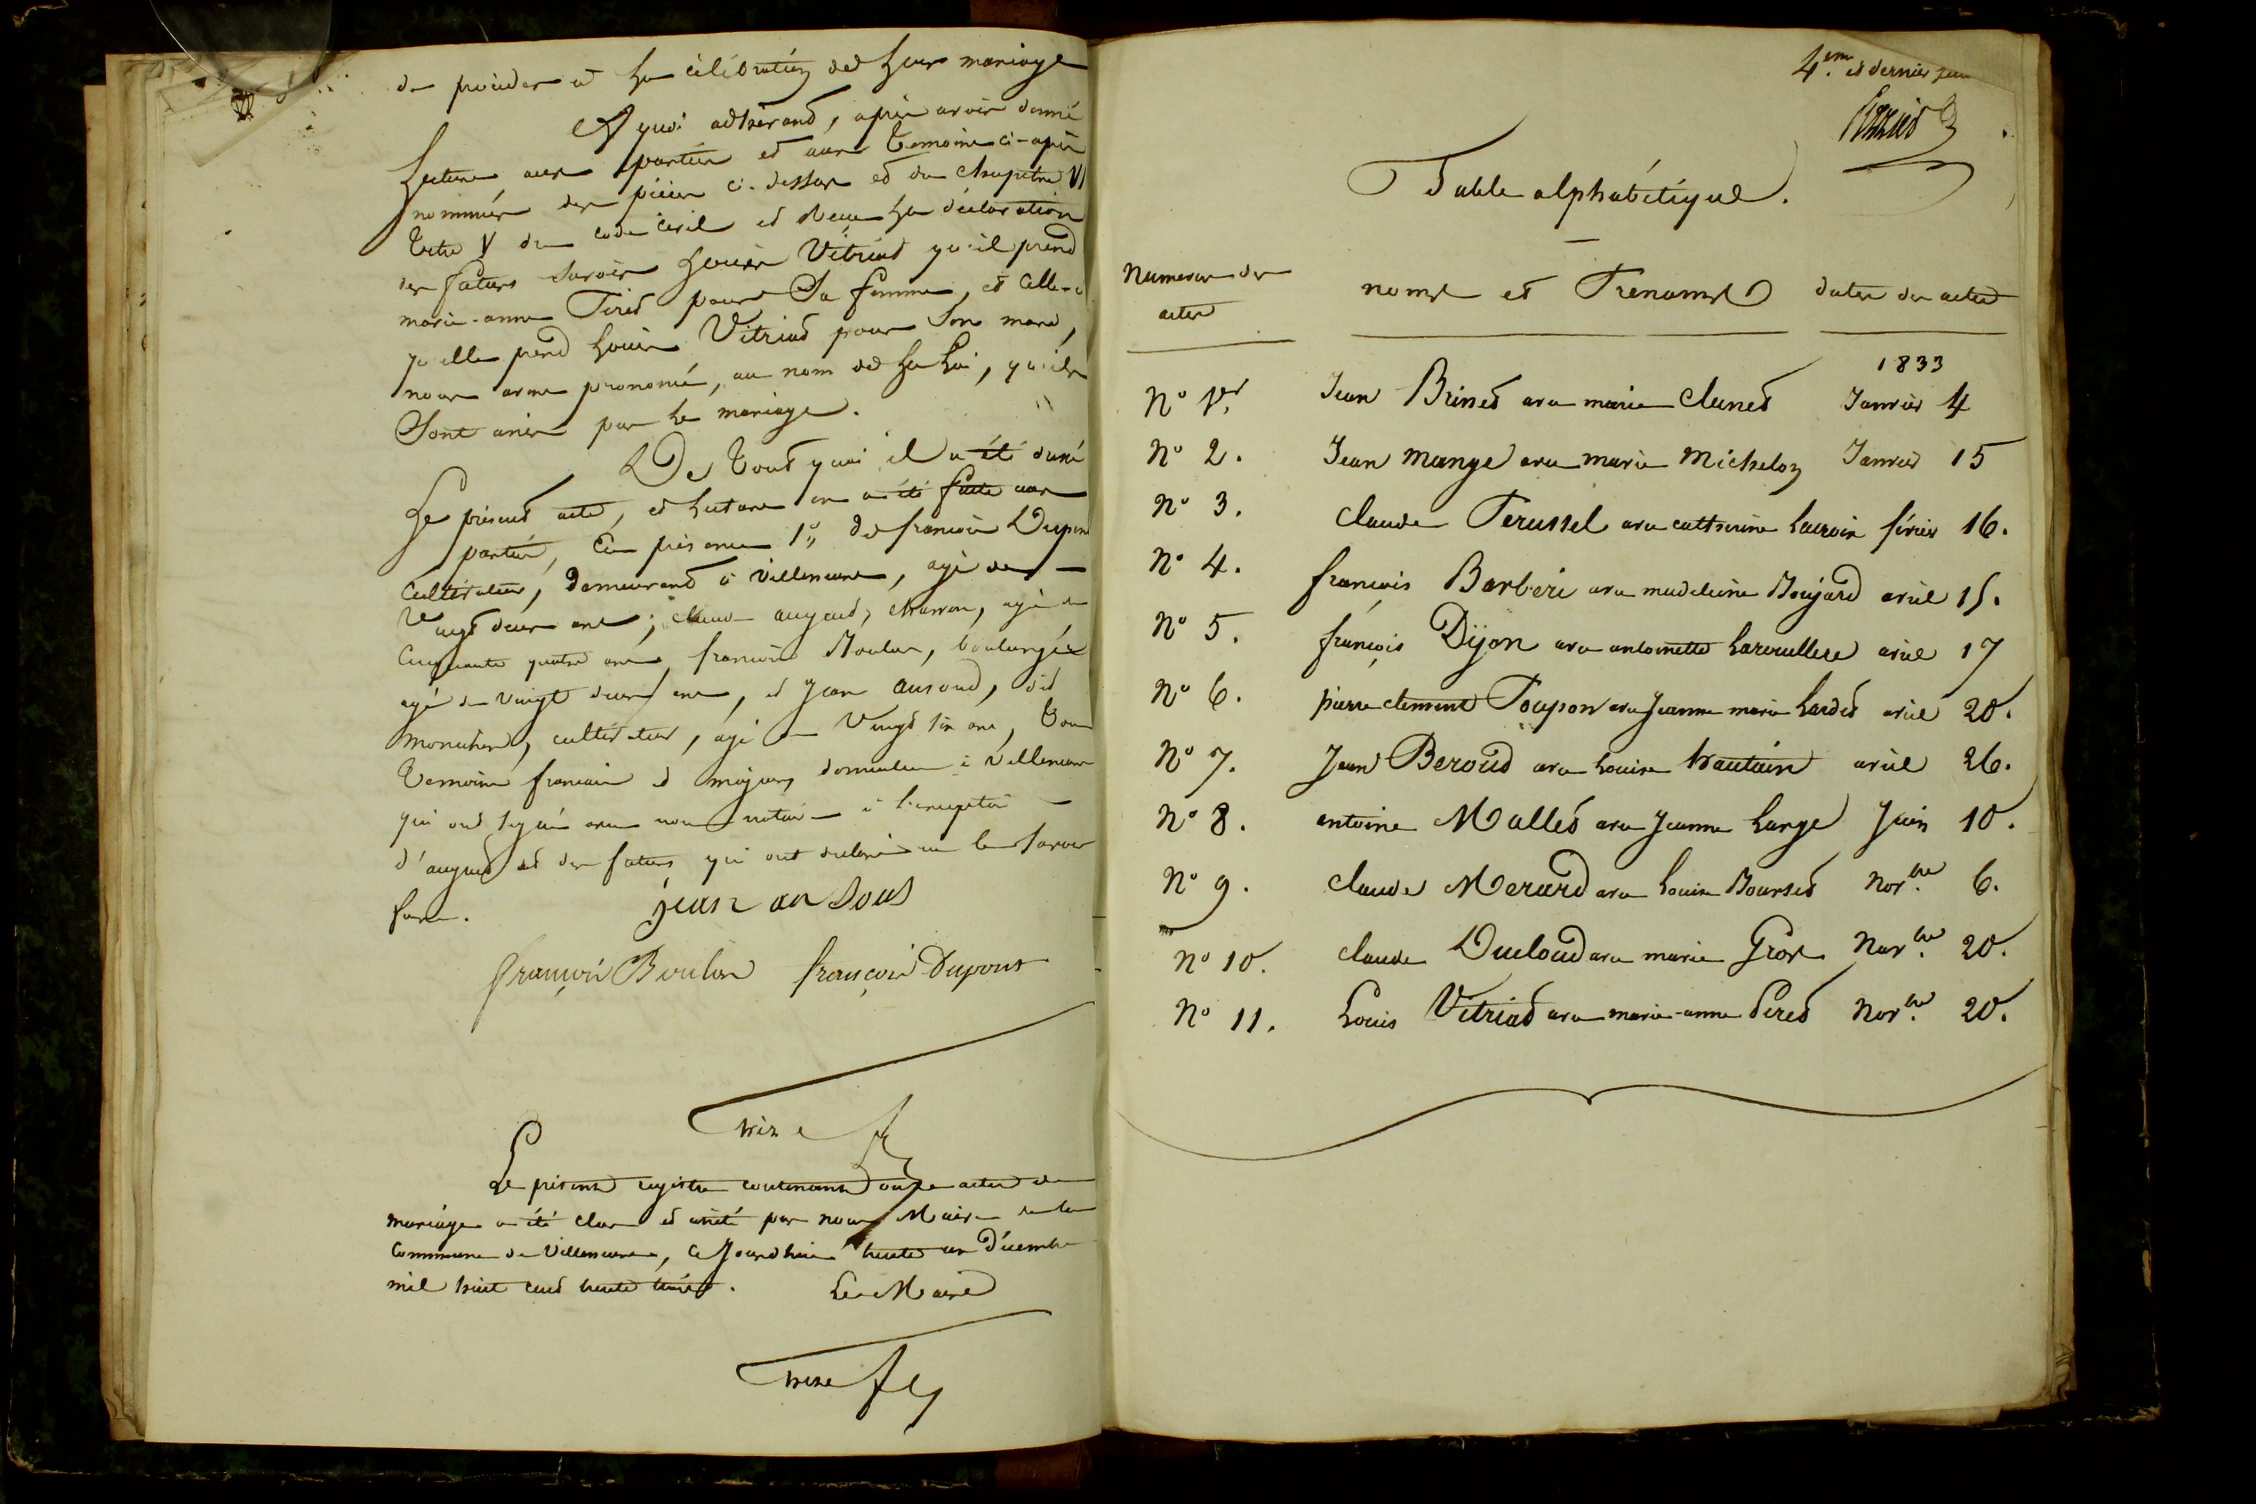 de procéder à la célébration de leur mariage
A quoi adhérant, après avoir donné
lecture aux parties et aux témoins ci-après
nommés des pièces ci-dessus et du chapitre VI
titre V du code civil et reçu la déclaration
des futurs savoir Louis Vitriat qu'il prend
marie-anne Peret pour sa femme, et celle-ci
qu'elle prend Louis Vitriat pour son mari,
nous avons prononcé, au nom de la loi, qu'ils
sont unis par le mariage.
De tout quoi il a été dressé
le présent acte, et lecture en a été faite aux
parties, en présence 1° de françois Dupont
cultivateur, demeurant à Villeneuve, agé de
Vingt deux ans; claude augaud, charron, agé de
cinquante quatre ans, françois Boulon, boulanger
agé de vingt deux ans, et Jean ausoud, dit
cultivateur, agé de Vingt six ans, tous
témoins français et majeurs domiciliés à Villeneuve
qui ont signé avec nous à l'exception
d'augaud et des futurs qui ont déclaré ne le savoir
faire.
jean au Soud
françois Boulon françois Dupont
Le présent registre contenant onze actes de
mariage a été clos et arrêté par nous Maire de la
Commune de Villeneuve, ce Jourd'hui trente un Décembre
mil huit cent trente trois. Le Maire
4.em et dernier
Table alphabétique.
Numeros des
actes
noms et Prenoms
dates des actes
1833
N° 1er Jean Brinet avec marie Clunet Janvier 4
N° 2. Jean Mange avec marie Michelon Janvier 15
N° 3. claude Perussel avec catherine Lacroix février 16.
N° 4. françois Barberi avec madeleine Boujard avril 15.
N° 5. françois Dijon avec antoinette avril 17
N° 6. pierre clement Poupon avec Jeanne marie Lardet avril 20.
N° 7. Jean Beroud avec Louise trautain avril 26.
N° 8. antoine Mallet avec Jeanne Large Juin 10.
N° 9. claude Merard avec Louise Bourset Nov.bre 6.
N° 10. claude Ducloud avec marie Gros Nov.bre 20.
N° 11. Louis Vitriat avec marie-anne Peret Nov.bre 20.